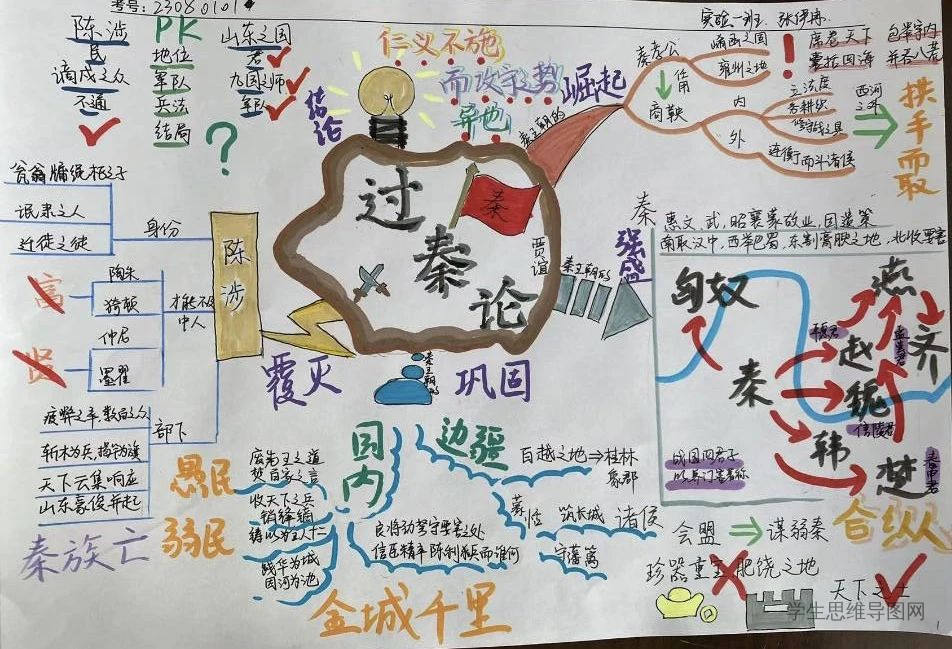 考号：23080101
实验一班
陈涉 PK 山东之国
民 地位 君
谪戍之众 军队 九国之师
不通 兵法 军队
结局
？
结论
仁义不施
而攻守之势
异也
秦王朝的
崛起
秦孝公
崤函之固
雍州之地
任用
商鞅
内
立法度
务耕织
修守战之具
外
连衡而斗诸侯
！
席卷天下 包举宇内
囊括四海 并吞八荒
西河
之外
拱
手
而
取
过
秦
论
秦
贾谊
陈涉
身份
瓮牖绳枢之子
氓隶之人
迁徙之徒
才能不及
中人
高
陶朱
猗顿
贤
仲尼
墨翟
部下
疲弊之卒，数百之众
斩木为兵，揭竿为旗
天下云集响应
山东豪俊并起
秦族亡
覆灭
秦王朝的
巩固
秦王朝的
秦
强盛
惠文、武、昭襄蒙故业，因遗策
南取汉中，西举巴蜀，东割膏腴之地，北收要害
匈奴
燕
赵
齐
秦
魏
信陵君
韩
楚
春申君
孟尝君
战国四君子
合纵
会盟 谋弱秦
珍器重宝 肥饶之地
天下之士
国内
愚民
废先王之道
焚百家之言
弱民
收天下之兵
销锋镝
铸以为金人十二
践华为城
因河为池
良将劲弩守要害之处
信臣精卒陈利兵而谁何
金城千里
边疆
百越之地 桂林
象郡
蒙恬 筑长城 诸侯
守藩篱
学生思维导图网